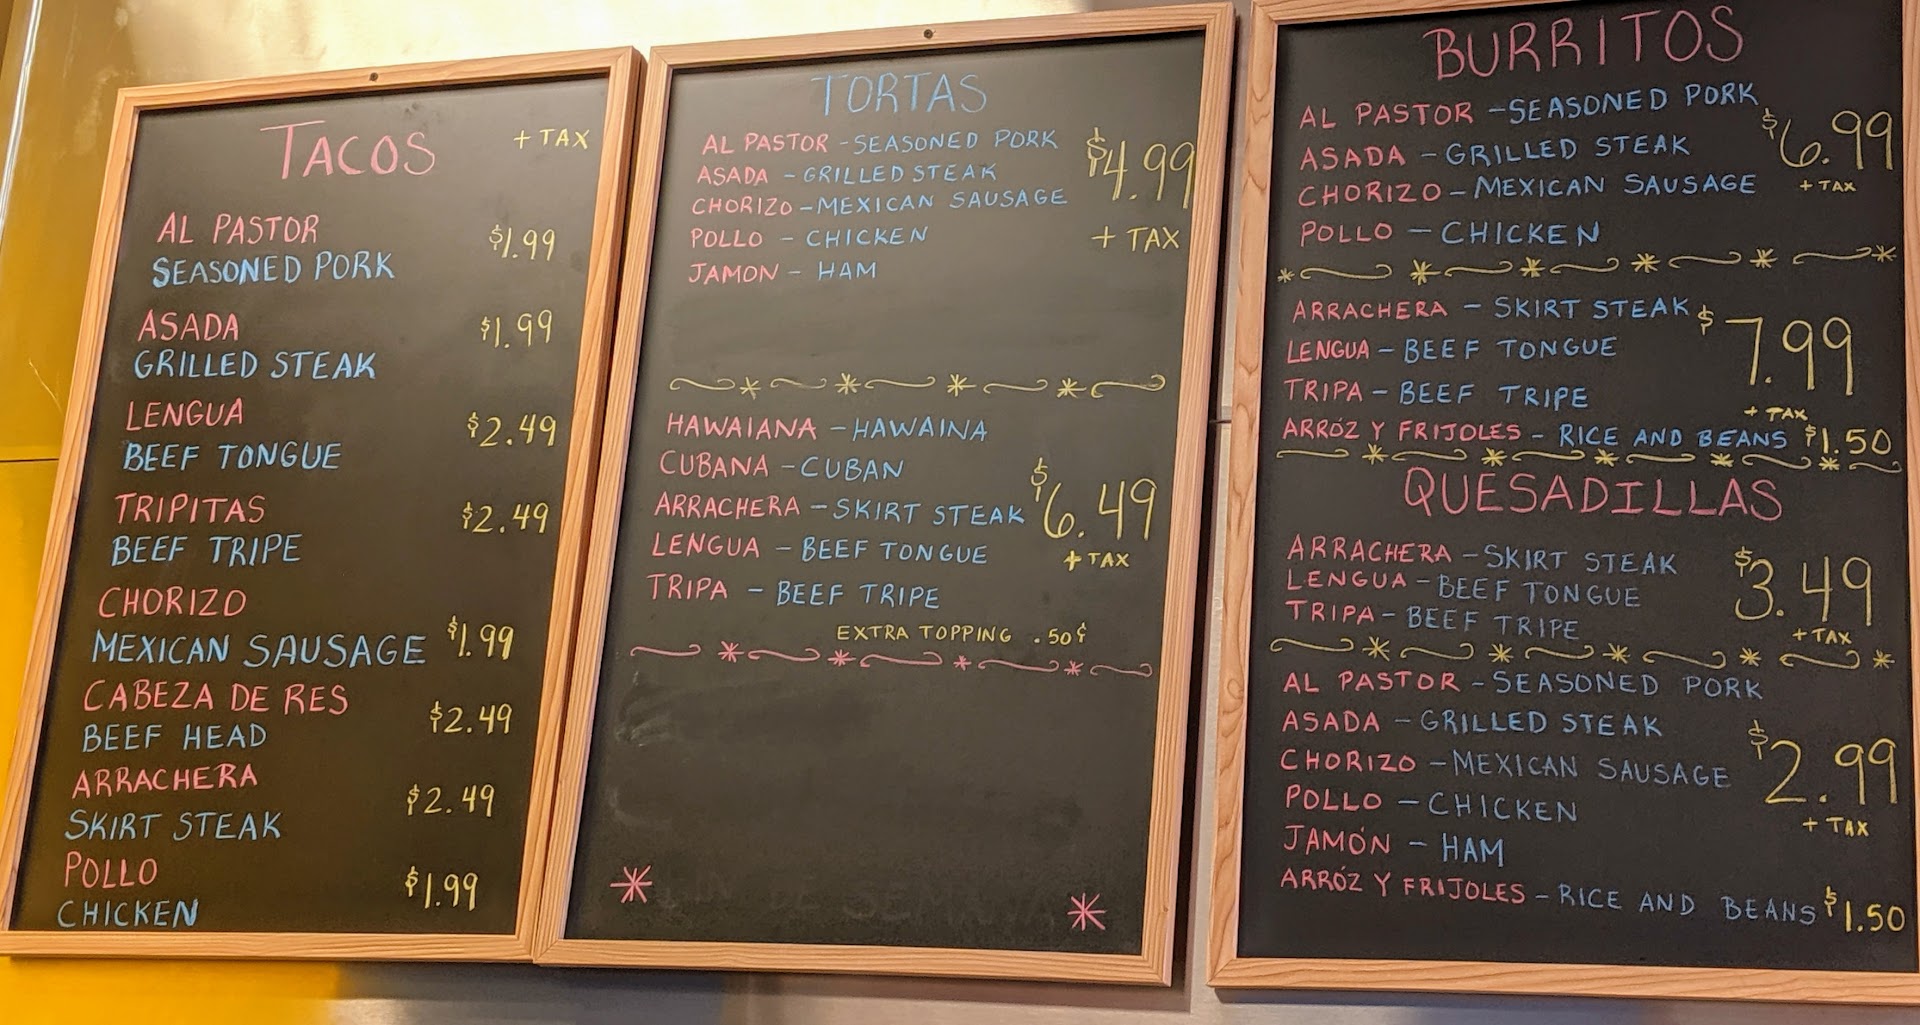 TACOS + TAX
AL PASTOR
SEASONED PORK $1.99
ASADA $1.99
GRILLED STEAK
LENGUA $2.49
BEEF TONGUE
TRIPITAS $2.49
BEEF TRIPE
CHORIZO
MEXICAN SAUSAGE $1.99
CABEZA DE RES $2.49
BEEF HEAD
ARRACHERA $2.49
SKIRT STEAK
POLLO $1.99
CHICKEN
TORTAS
AL PASTOR - SEASONED PORK $4.99
ASADA - GRILLED STEAK
CHORIZO - MEXICAN SAUSAGE
POLLO - CHICKEN + TAX
JAMON - HAM
HAWAIANA - HAWAINA
CUBANA - CUBAN
ARRACHERA - SKIRT STEAK $6.49
LENGUA - BEEF TONGUE + TAX
TRIPA - BEEF TRIPE
EXTRA TOPPING .50¢
DE SEMANA
BURRITOS
AL PASTOR - SEASONED PORK $6.99
ASADA - GRILLED STEAK
CHORIZO - MEXICAN SAUSAGE + TAX
POLLO - CHICKEN
ARRACHERA - SKIRT STEAK $7.99
LENGUA - BEEF TONGUE
TRIPA - BEEF TRIPE + TAX
ARRÓZ Y FRIJOLES - RICE AND BEANS $1.50
QUESADILLAS
ARRACHERA - SKIRT STEAK $3.49
LENGUA - BEEF TONGUE
TRIPA - BEEF TRIPE + TAX
AL PASTOR - SEASONED PORK
ASADA - GRILLED STEAK $2.99
CHORIZO - MEXICAN SAUSAGE
POLLO - CHICKEN + TAX
JAMÓN - HAM
ARRÓZ Y FRIJOLES - RICE AND BEANS $1.50